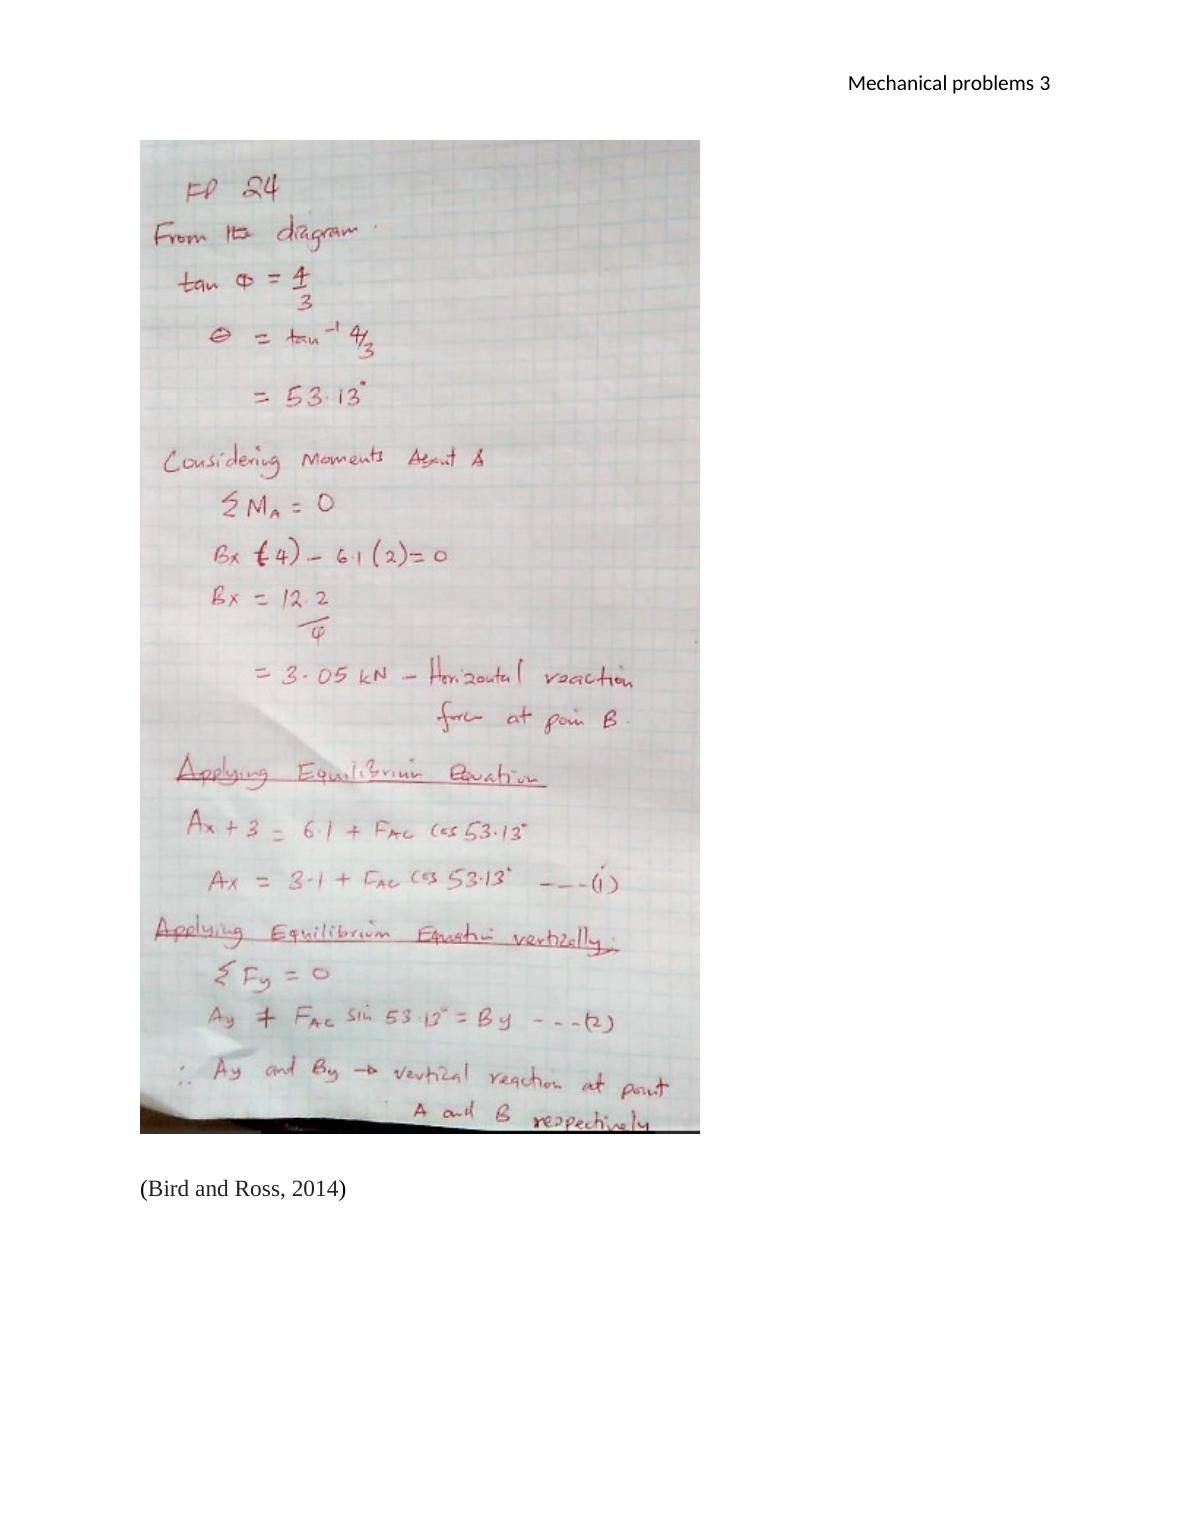 Mechanical problems 3
FP 24
From the diagram.
tan Φ = 4/3
θ = tan⁻¹ 4/3
= 53.13°
Considering Moments About A
ΣM_A = 0
Bx (4) - 6.1 (2) = 0
Bx = 12.2/4
= 3.05 kN - Horizontal reaction
force at poin B.
Applying Equilibrium Equation
Ax + 3 = 6.1 + F_AC Cos 53.13°
Ax = 3.1 + F_AC Cos 53.13° ----(i)
Applying Equilibrium Equation vertically:
ΣFy = 0
Ay + F_AC Sin 53.13° = By ---(2)
∴ Ay and By → vertical reaction at point
A and B respectively
(Bird and Ross, 2014)